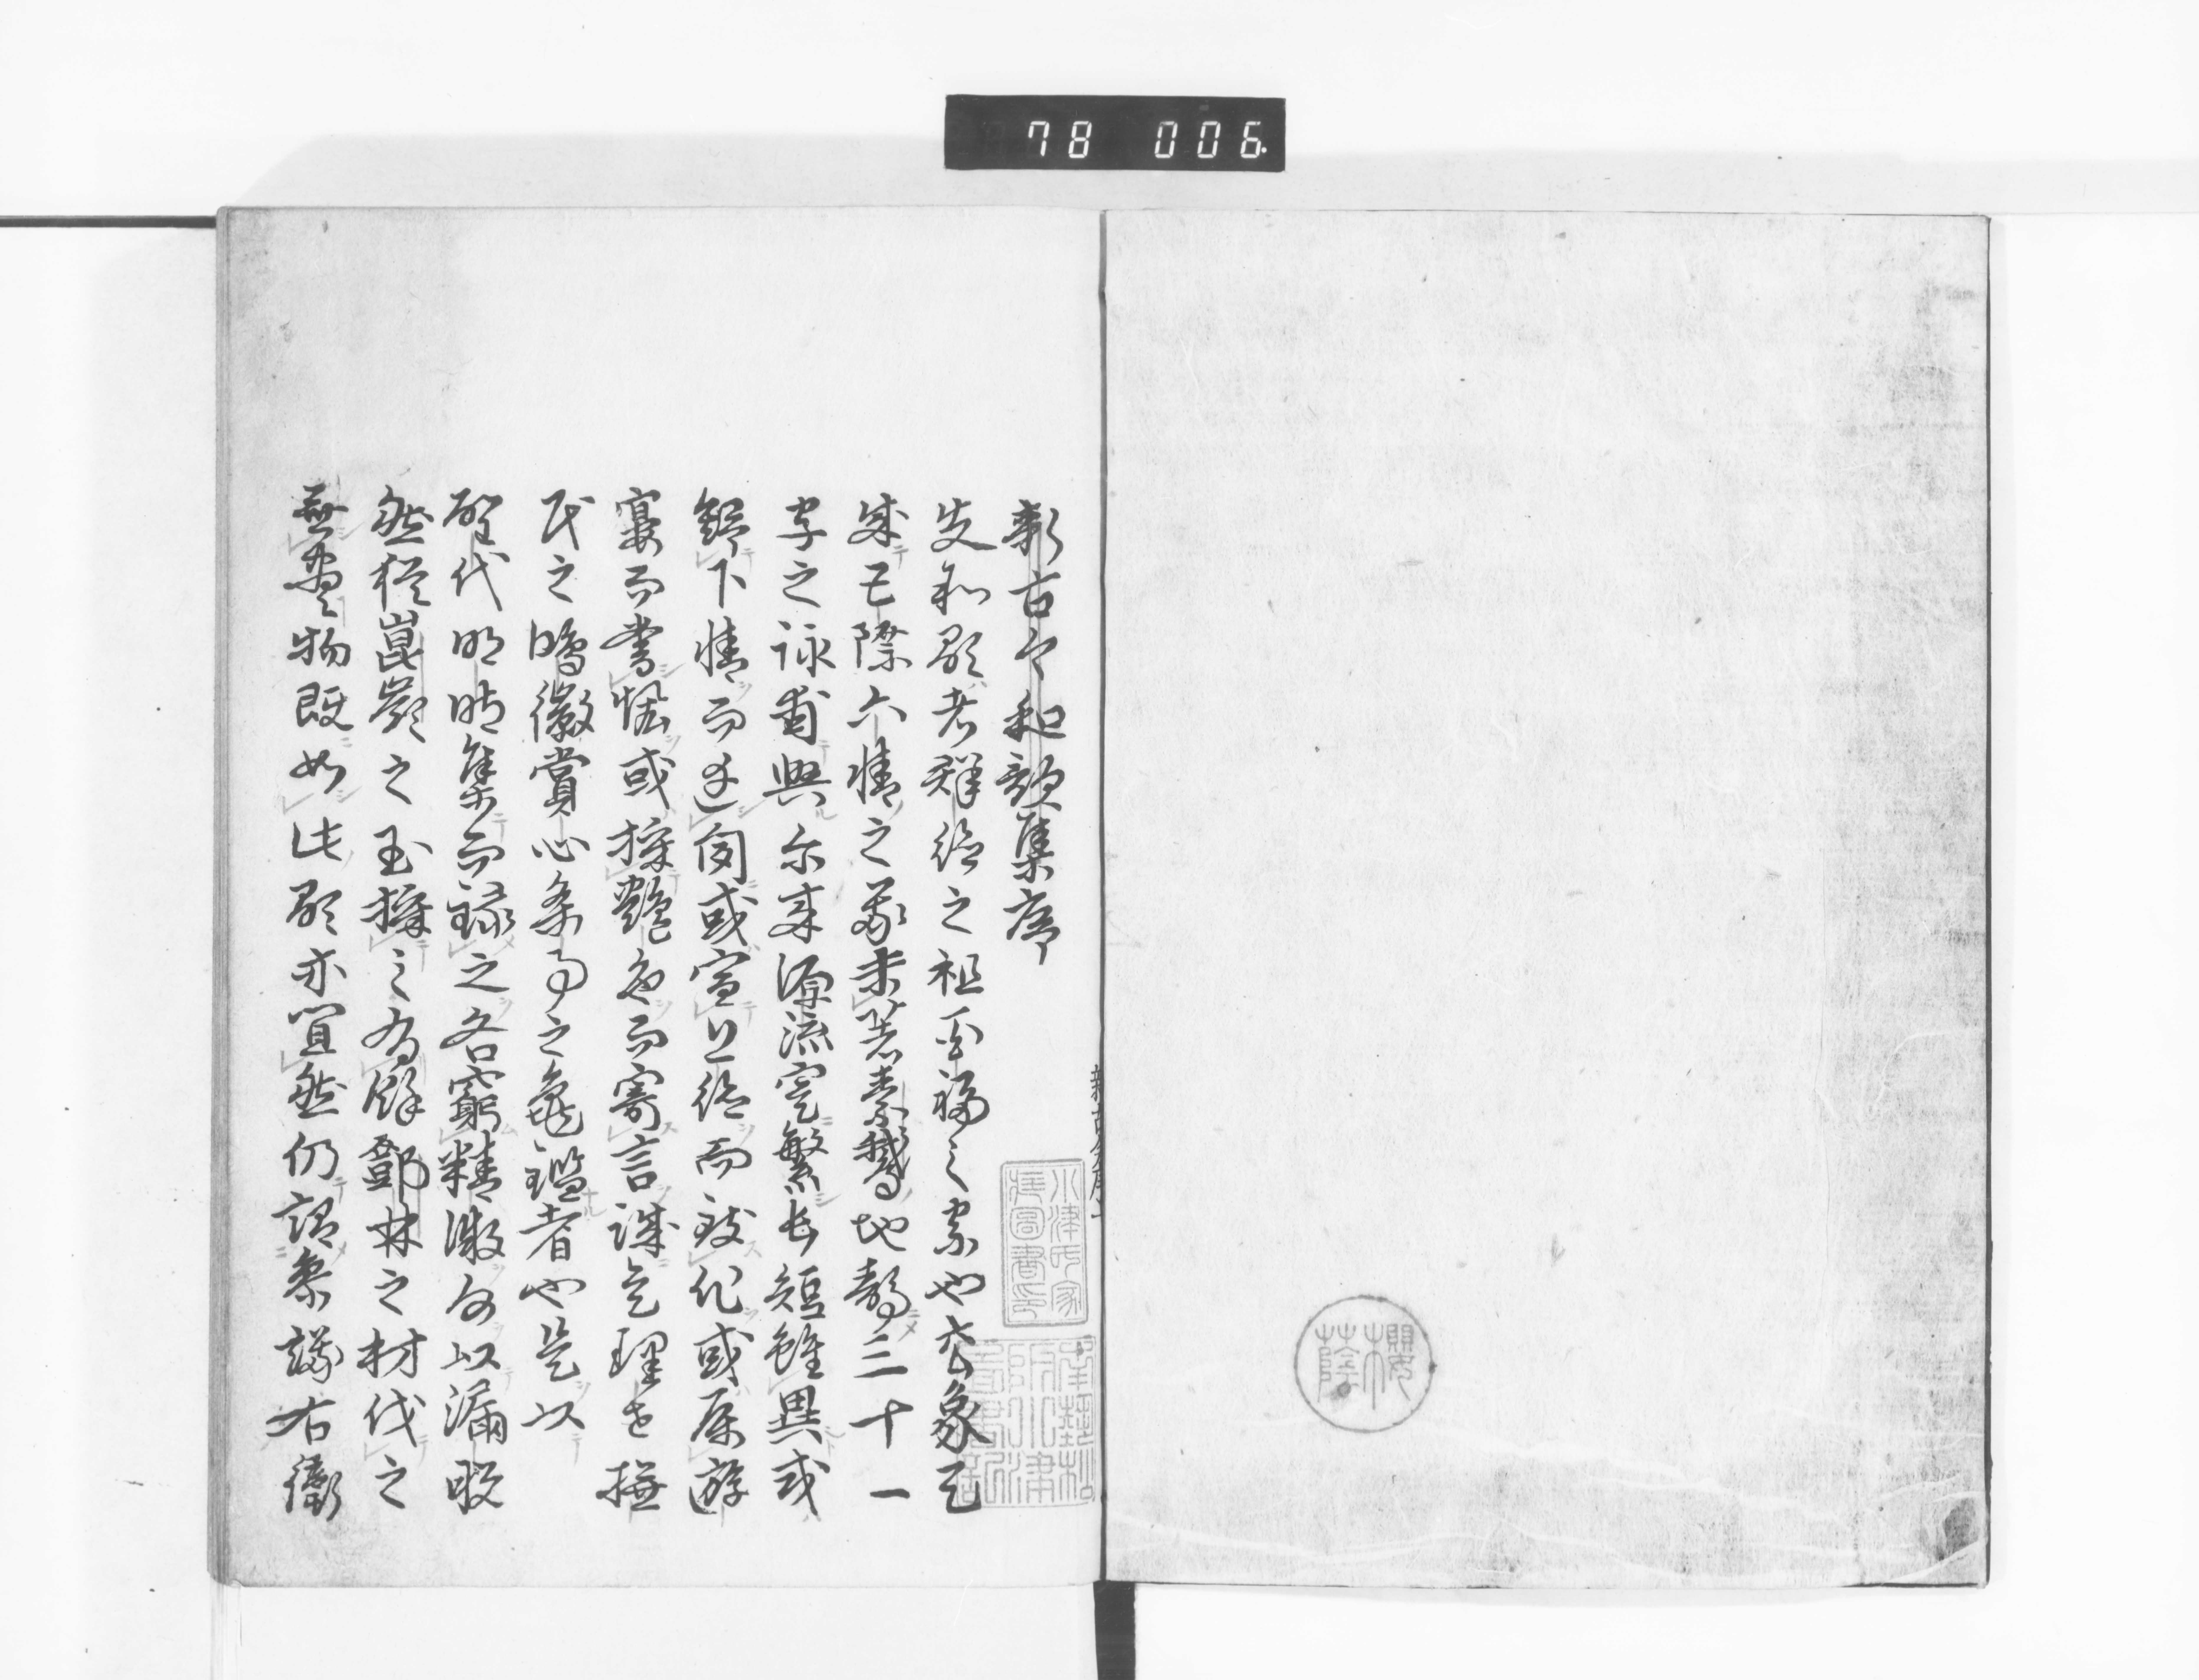 78 006
新古今和歌集序
夫和歌者群徳之祖百福之宗也玄象天
成五際六情之義未著素鵞地静三十一
字之詠甫興尓来源流寔繁長短雖異或
舒下情而達聞或宣上徳而致化或属遊
宴而書懐或採艶色而寄言誠是理世撫
民之鴻徽賞心楽事之亀鑑者也是以
聖代明時集而録之各窮精微何以漏脱
然猶崑嶺之玉採之有餘鄧林之材伐之
無尽物既如此歌亦宜然仍詔参議右衛
小津氏家
蔵図書印
桜蔭